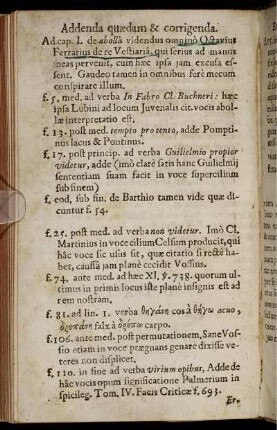 Addenda quædam & corrigenda.
Ad cap. I. de abolla videndus omnino Octavius
Ferrarius de re Vestiariâ, qui serius ad manus
meas pervenit, cum hæc ipsa jam excusa es-
sent. Gaudeo tamen in omnibus ferè mecum
conspirare illum.
f. 5. med. ad verba In Fabro Cl. Buchneri: hæc
ipsa Lubini ad locum Juvenalis cit. vocis abol-
læ interpretatio est.
f. 13. post med. tempto pro tento, adde Pompti-
nus lacus & Pontinus.
f. 17. post princip. ad verba Guilielmio propior
videtur, adde (imò clarè satis hanc Guilielmij
sententiam suam facit in voce supercilium
sub finem)
f. eod, sub fin. de Barthio tamen vide quæ di-
cuntur f. 54.
f. 25. post med. ad verba non videtur. Imò Cl.
Martinius in voce cilium Celsum producit, qui
hâc voce sic usus sit, quæ citatio si rectè ha-
bet, caussâ jam planè cecidit Vossius.
f. 74. ante med. ad hæc XI, ỳ. 738. quorum ul-
timus in primis locus iste planè insignis est ad
rem nostram,
f. 81. ad lin. 1. verba θηγάνη cos à θήγω acuo,
δρεπάνη falx à δρέπω carpo.
f. 106. ante med. post permutationem, Sane Vos-
sio etiam in voce prægnans genare dixisse ve-
teres non displicet.
f. 110. in fine ad verba virium opibus, Adde de
hâc vocis opum significatione Palmerium in
spicileg. Tom. IV. Facis Criticæ f. 693.
Er-